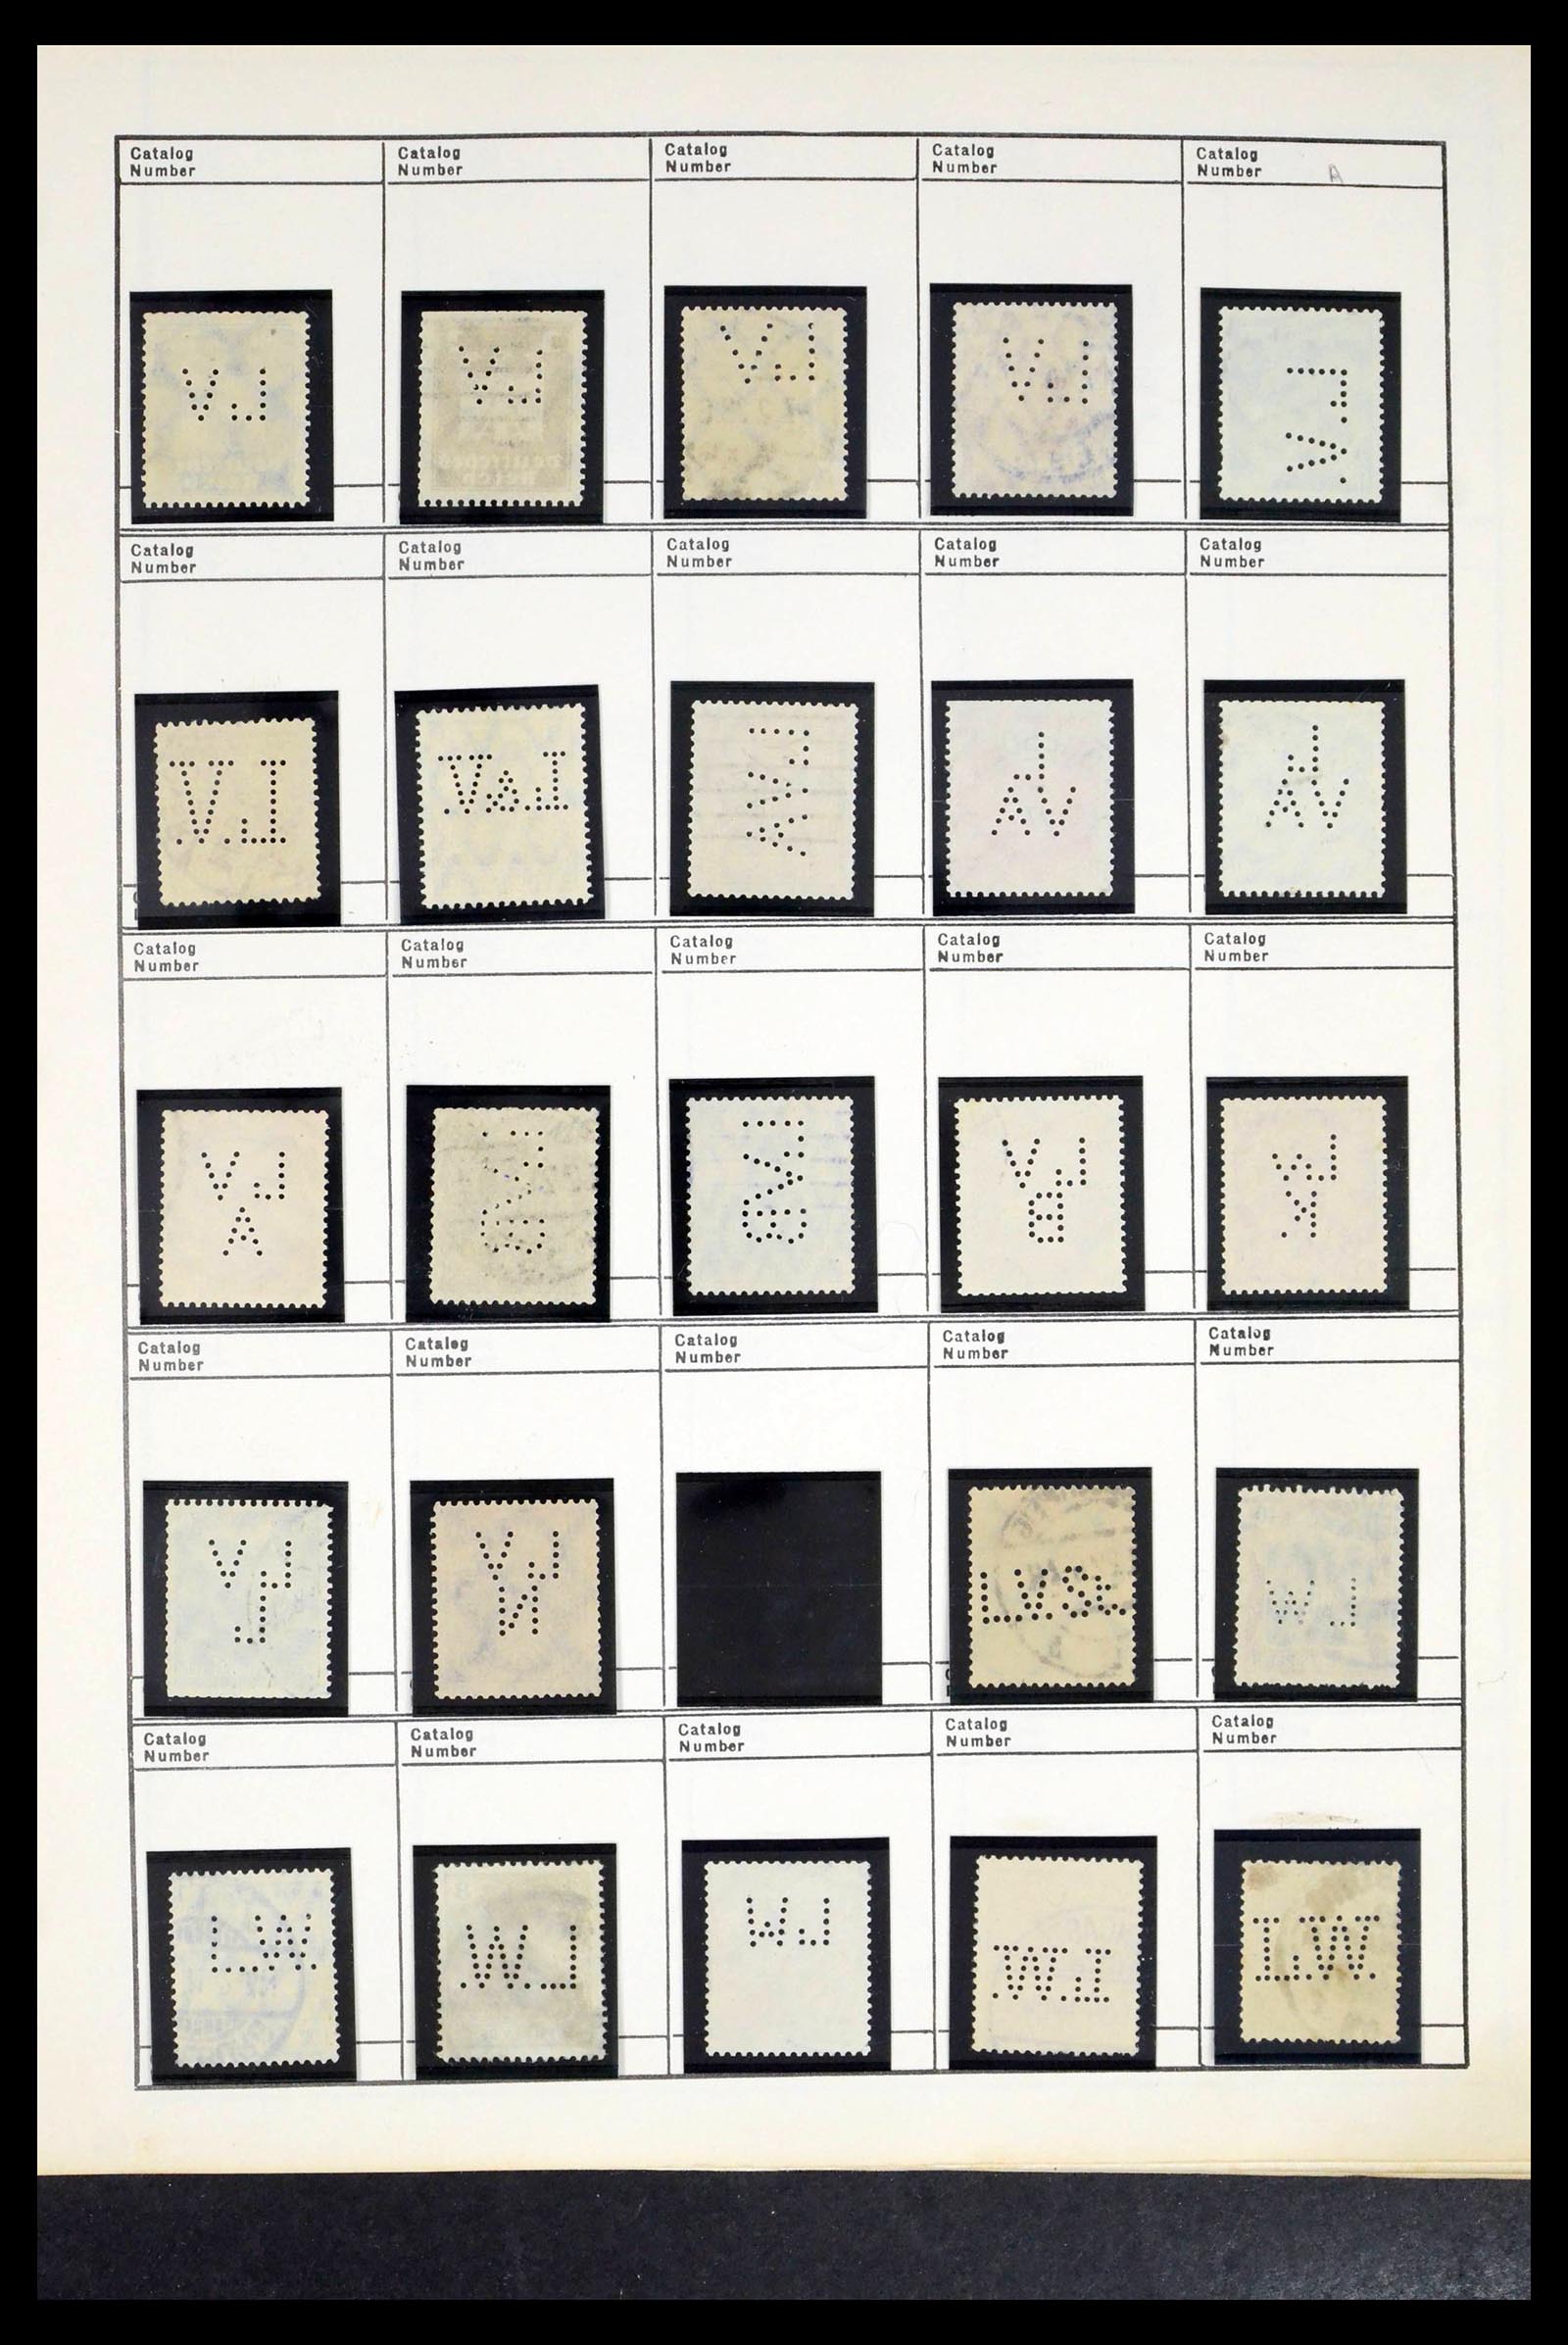 Catalog Number
Catalog Number
Catalog Number
Catalog Number
Catalog Number A
V.J
V.J
V.J
V.J
L.V.
Catalog Number
Catalog Number
Catalog Number
Catalog Number
Catalog Number
V.I
V.&.I
L.V.A
L AV
L AV
Catalog Number
Catalog Number
Catalog Number
Catalog Number
Catalog Number
V.J
A
L.V.B
L.V.B
V.J
B
K
Catalog Number
Catalog Number
Catalog Number
Catalog Number
Catalog Number
V.J
L
V.J
N
L.V.St.
W.J
Catalog Number
Catalog Number
Catalog Number
Catalog Number
Catalog Number
L.W.
.W.J
W.J
.W.I
L.W.